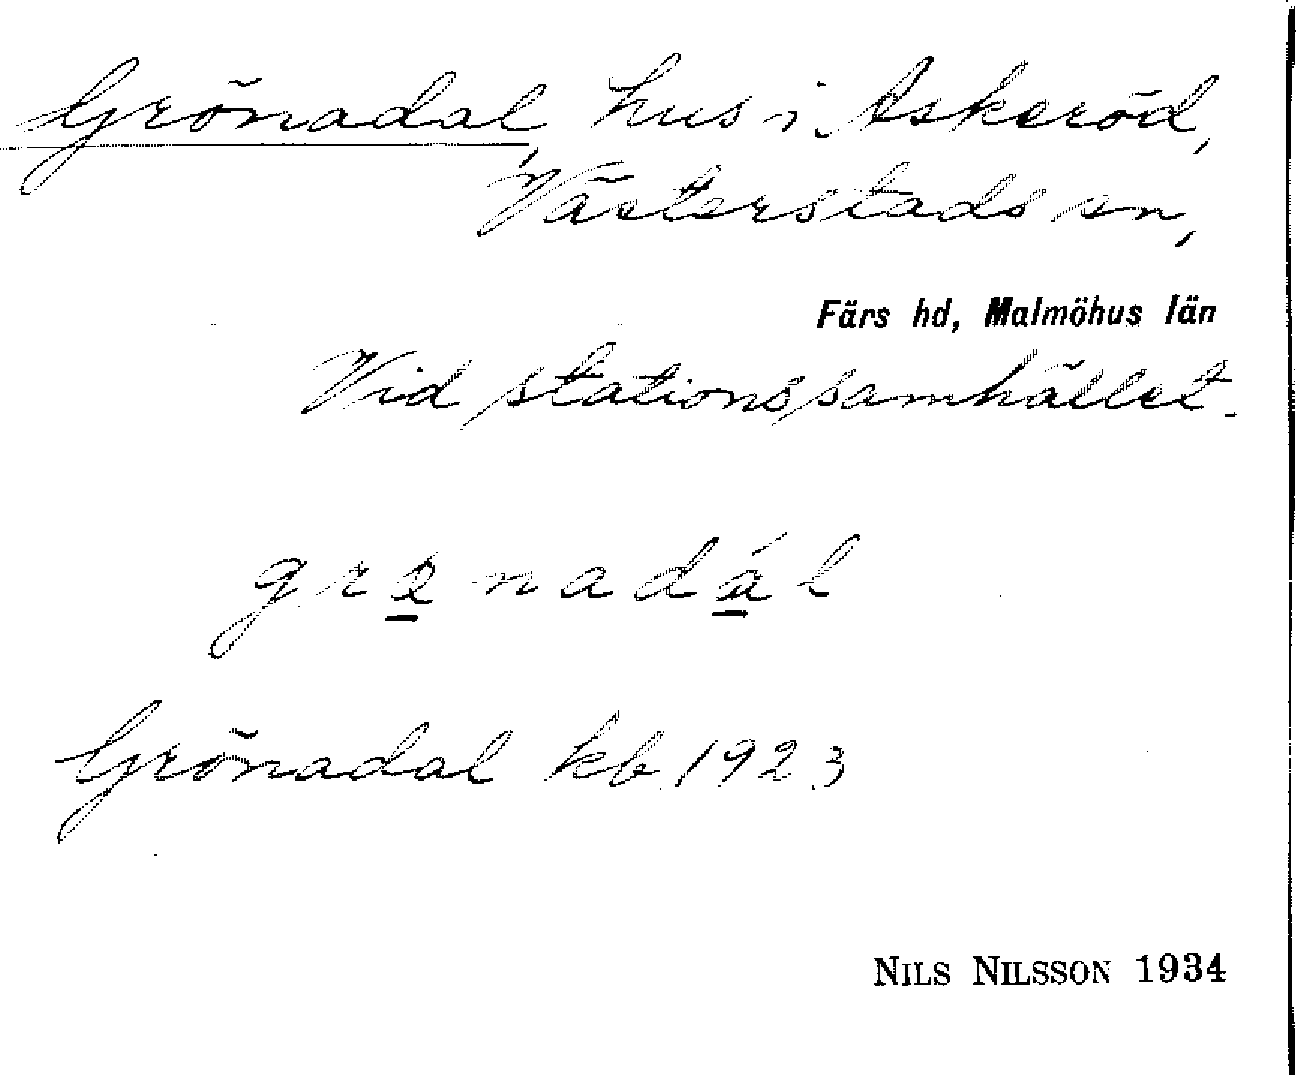 Grönadal, hus i Askeröd,
Västerstads sn,
Färs hd, Malmöhus län
Vid stationssamhället.
Grönadal kb 1923
NILS NILSSON 1934